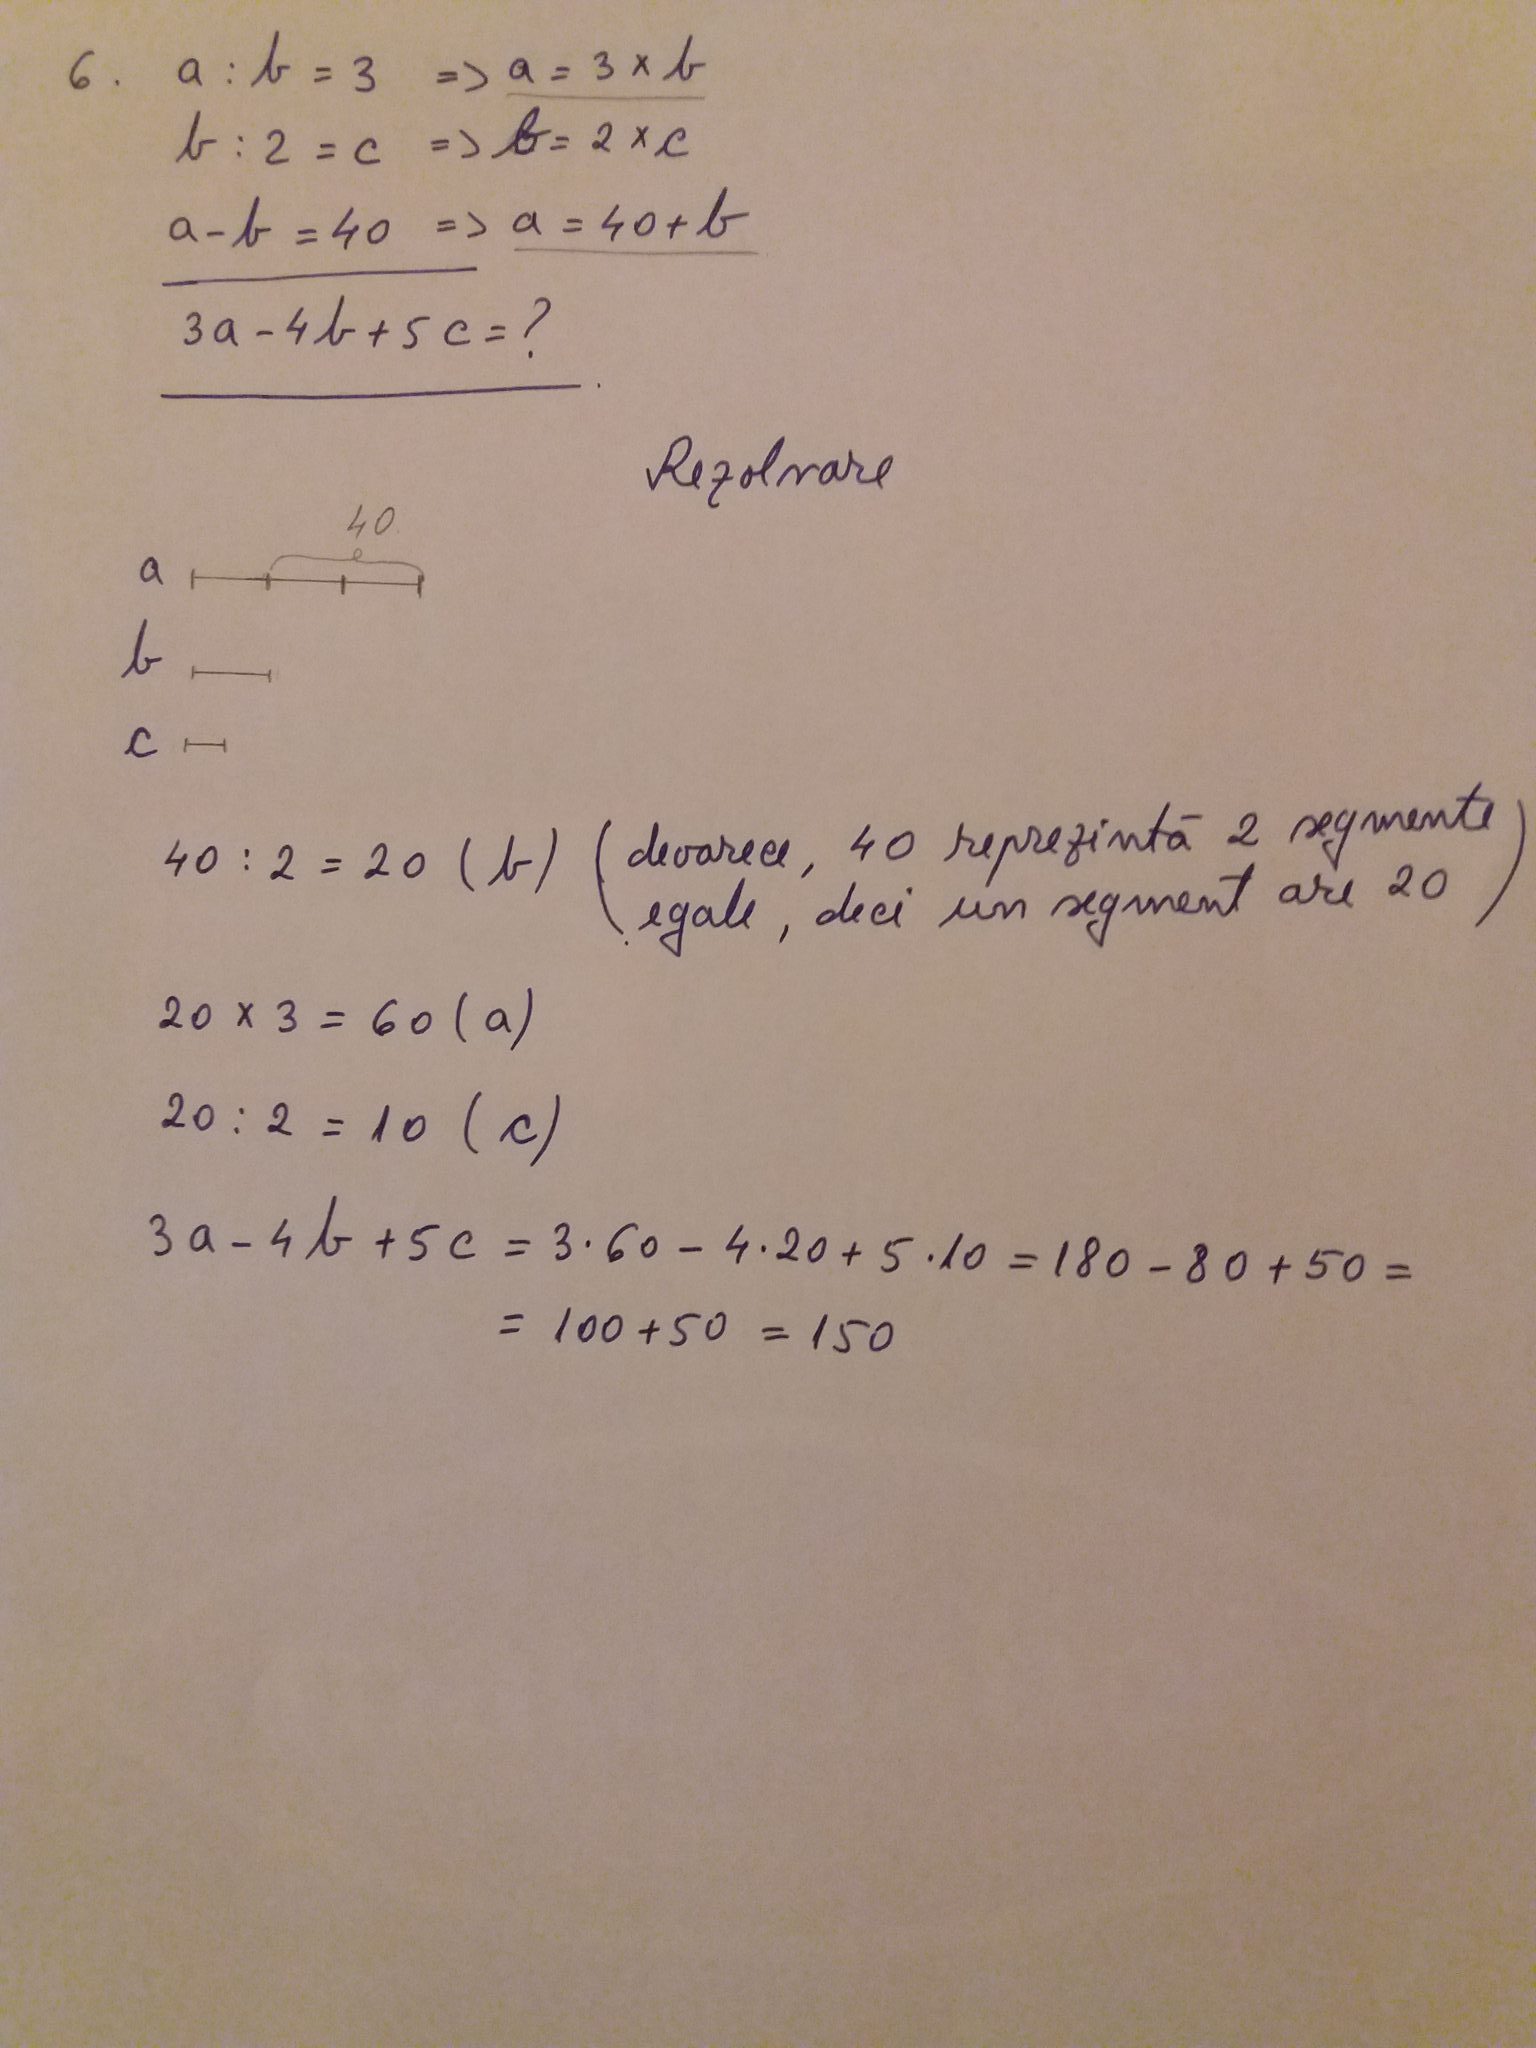 6. a : b = 3 => a = 3 × b
b : 2 = c => b = 2 × c
a - b = 40 => a = 40 + b
3a - 4b + 5c = ?
Rezolvare
40
a
b
c
40 : 2 = 20 (b) (deoarece, 40 reprezintă 2 segmente
egale, deci un segment are 20)
20 × 3 = 60 (a)
20 : 2 = 10 (c)
3a - 4b + 5c = 3·60 - 4·20 + 5·10 = 180 - 80 + 50 =
= 100 + 50 = 150